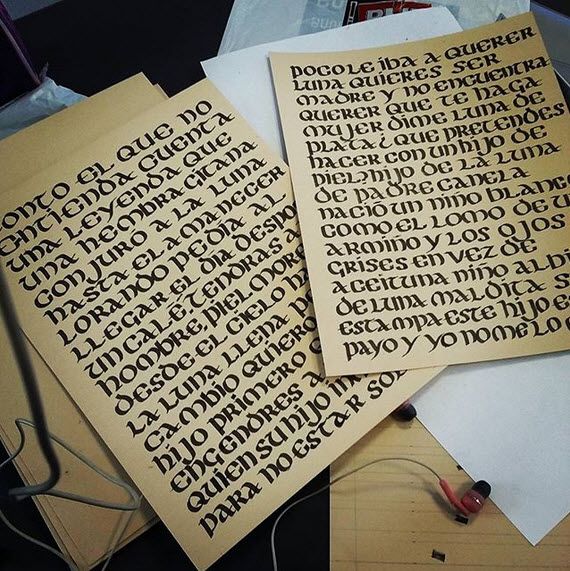 ONTO EL QUE NO
ENTIENDA CUENTA
UNA LEYENDA QUE
UNA HEMBRA GITANA
CONJURO A LA LUNA
HASTA EL AMANECER
LORANDO PEDIA AL
LLEGAR EL DIA DESPO
UN CALÉ, TENDRAS A
HOMBRE, PIEL MORE
DESDE EL CIELO HA
LA LUNA LLENA
CAMBIO QUIERO
HIJO PRIMERO
ENGENDRES A
QUIEN SU HIJO IN
PARA NO ESTAR SOL
POCO LE IBA A QUERER
LUNA QUIERES SER
MADRE Y NO ENCUENTRA
QUERER QUE TE HAGA
MUJER DIME LUNA DE
PLATA ¿QUE PRETENDES
HACER CON UN HIJO DE
PIEL? HIJO DE LA LUNA
DE PADRE CANELA
NACIÓ UN NIÑO BLANCO
COMO EL LOMO DE U
ARMIÑO Y LOS OJOS
GRISES EN VEZ DE
ACEITUNA NIÑO ALBI
DE LUNA MALDITA S
ESTAMPA ESTE HIJO ES
PAYO Y YO NO ME LO